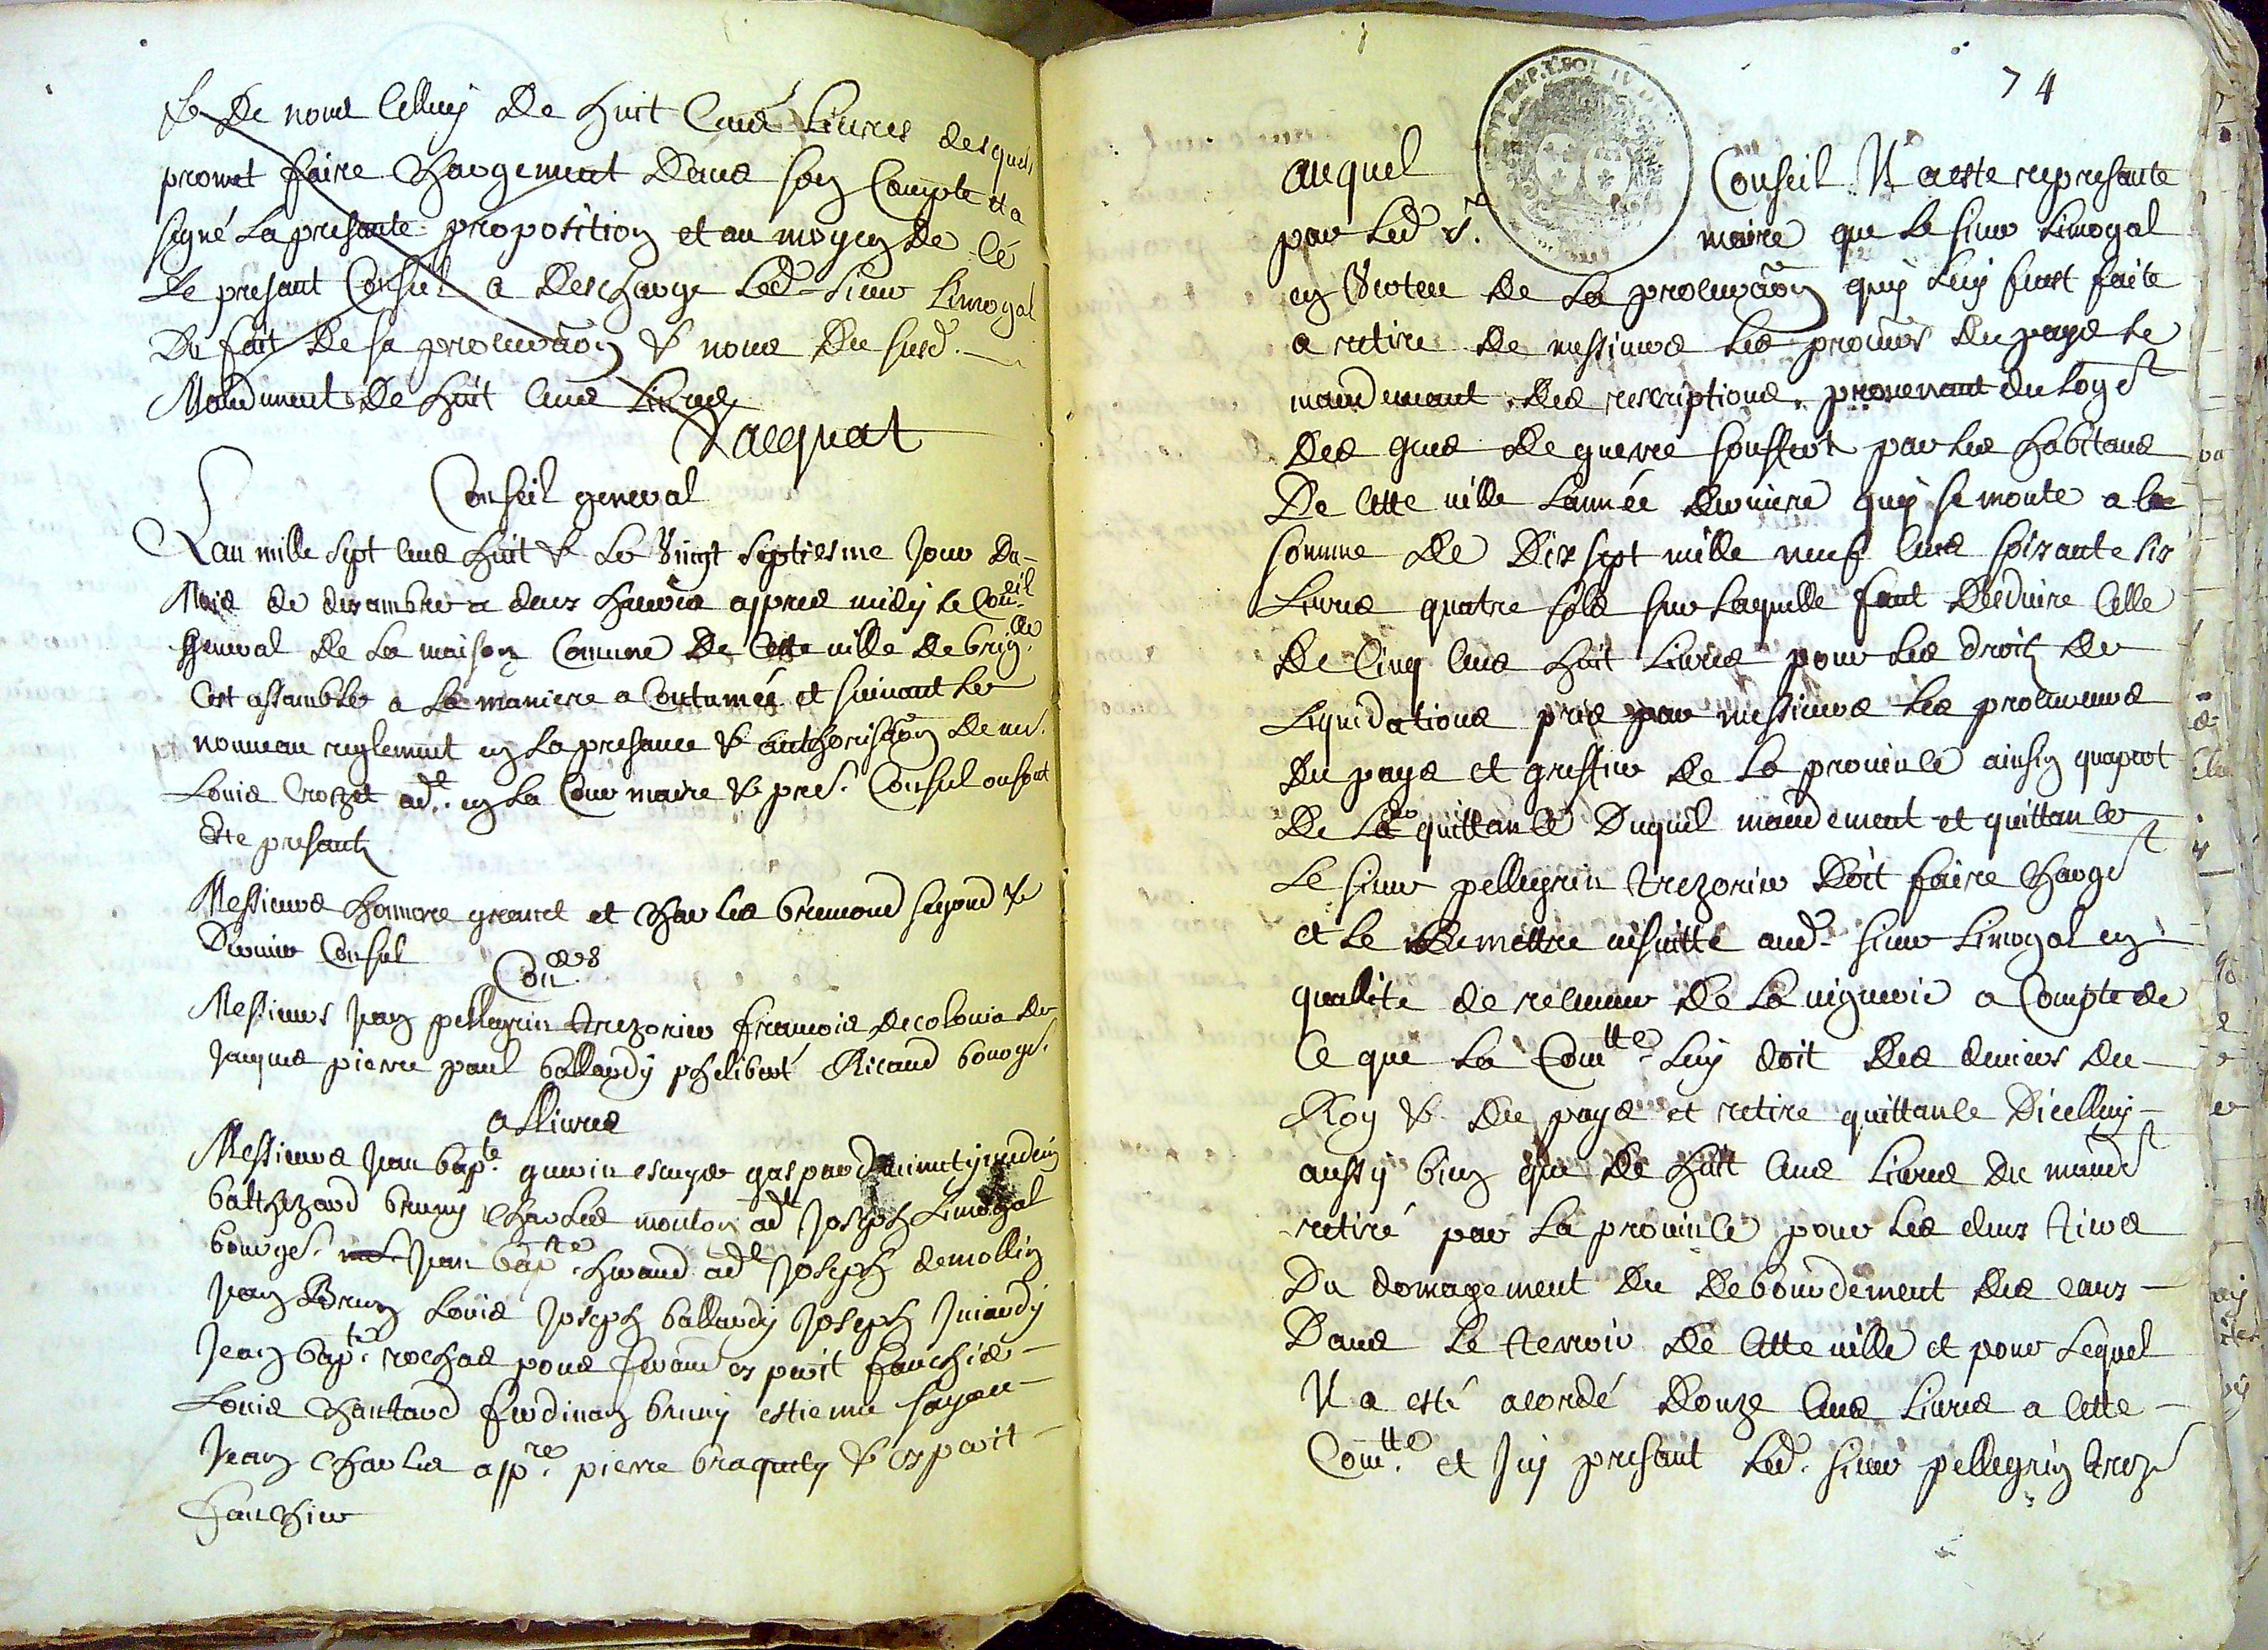 & De nous Celluy De huit Cens Livres desquels
promet faire Chargement Dans son Compte et a
signé La presante proposition et au moyen De Ce
Le presant Conseil a Descharge Led. sieur Limogal
Du fait De sa procuraon & nous Du susd.
Mandement De huit Cens Livres
Conseil general
Lan mille sept Cens huit & Le Vingt septiesme Jour Du
Mois de desambre a deux heures appres midy Le Con.eil
General De La maison Comune De Cette ville De brig.lle
Cest assamblee a La maniere a Coutumée et suivant Le
nouveau reglement en La presance & authorisaon De mr.
Louis Crozet ad.t en La Cour maire & pre.r Consul ou sont
Este presantz
Messieurs honnore granet et Charles bremond segond &
Dernier Consul
Con.ers
Messieurs Jean pellegrin trezorier francois Decolonia De
Jacques pierre paul ballardy phelibert Ricaud bourge.
allivres
Messieurs Jean bap.te guerin escuyer gaspard
balthezard bruny Charles mouton ad.t Joseph Limogal
bourge. Jean bap.te heraud ad.t Joseph demollin
Jean Brun Louis Joseph ballardy Joseph Juiardy
Jean bap.te rochas pons feraud esperit fauchier
Louis Chautard ferdinan bruny estienne
Jean Charles app.re pierre braquety & esperit
fauchier
74
auquel Conseil Il a este represante
par Led. sr. maire que Le sieur Limogal
en Verteu De La procuraon quy Luy feust faite
a retire De messieurs Les procurs Du pays Le
mandement Des rescriptions provenant du Loge.t
Des gens De guerre souffert par Les habitans
De Cette ville Lannée Derniere quy se monte a La
somme De Dix sept mille neuf Cens soixante six
Livres quatre sols sur Laquelle faut Desduire Celle
De Cinq Cens huit Livres pour Les droitz De
Liquidations pris par messieurs Les procureurs
Du pays et greffier De La province ainsin quapert
De La quittance Duquel mandement et quittance
Le sieur pellegrin trezorier Doit faire Charge.t
et Le Remettre ensuitte aud. sieur Limogal en
quallite de receveur De La viguerie a Compte de
Ce que La Com.tte Luy doit Des deniers Du
Roy & Du pays et retire quittance Dicelluy
aussy bien que De huit Cens Livres Du mand.t
retiré par La province pour Les deux tiers
Du domagement Du Debourdement Des eaux
Dans Le terroir De Cette ville et pour Lequel
Il a esté acordé Douze Cens Livres a Cette
Com.tte et Icy presant Led. sieur pellegrin trez.r